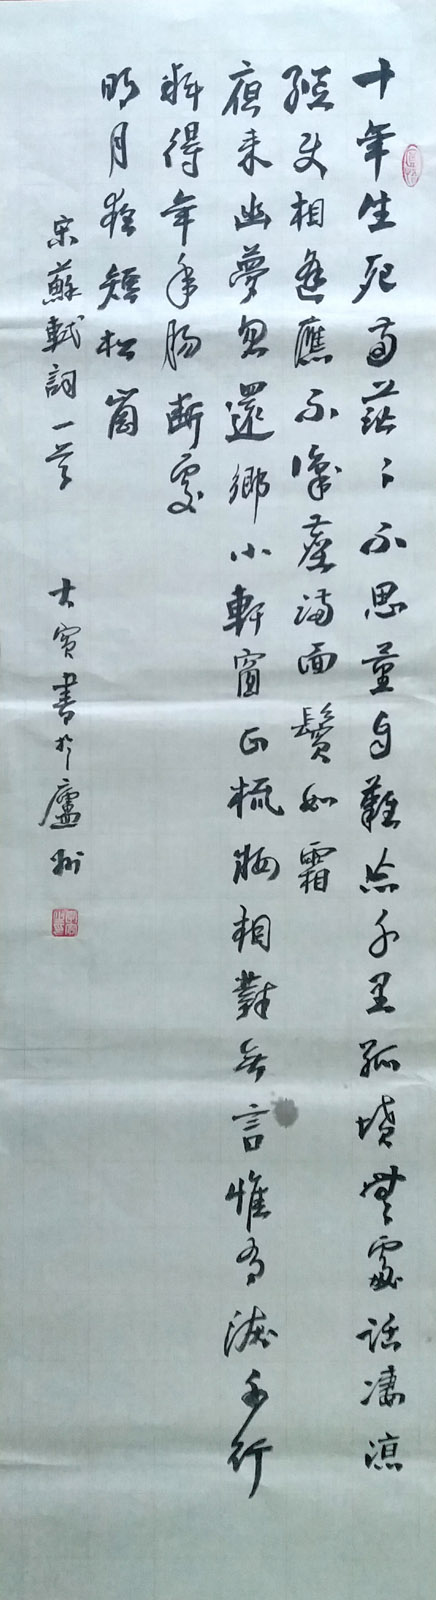 十年生死两茫〻不思量自難忘千里孤墳無處話凄涼
縱使相逢應不識塵滿面鬢如霜
夜来幽夢忽還鄉小軒窗正梳妝相對無言惟有淚千行
料得年年腸斷處
明月夜短松崗
宋蘇軾詞一首
書於廬州